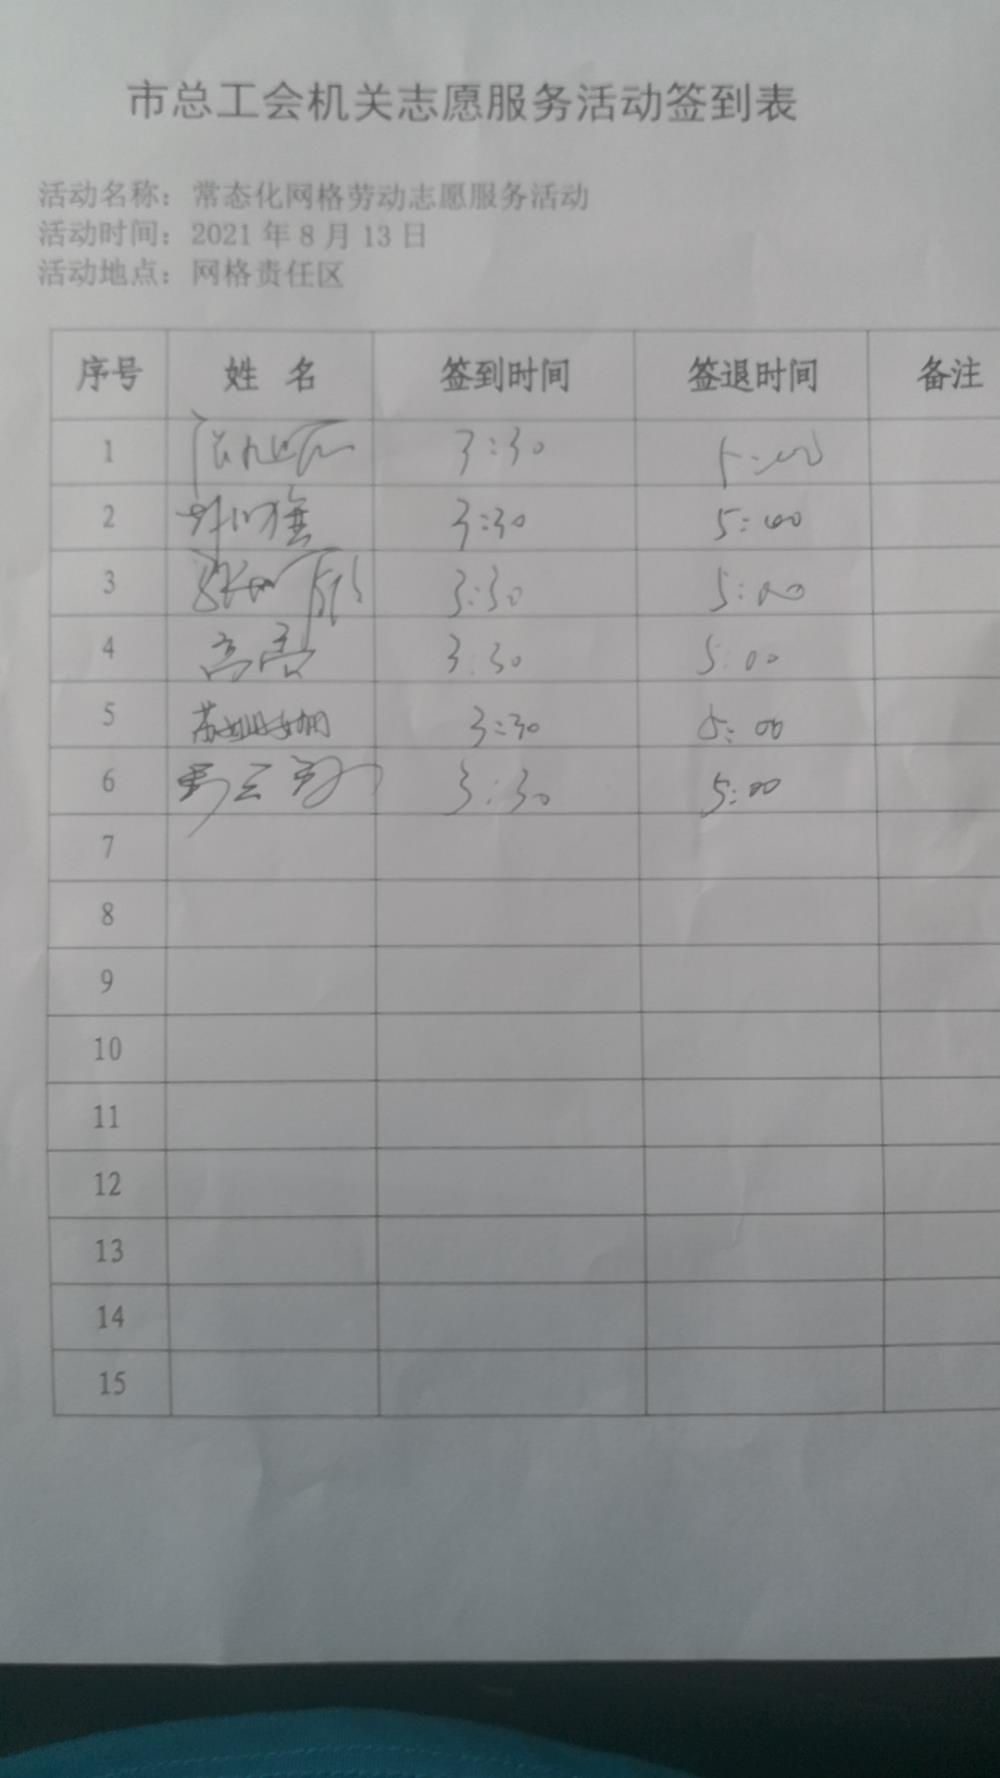 市总工会机关志愿服务活动签到表
活动名称：常态化网格劳动志愿服务活动
活动时间：2021 年 8 月 13 日
活动地点：网格责任区
序号 姓 名 签到时间 签退时间 备注
1 3:30 5:00
2 3:30 5:00
3 3:30 5:00
4 高亮 3:30 5:00
5 苏姗姗 3:30 5:00
6 3:30 5:00
7
8
9
10
11
12
13
14
15